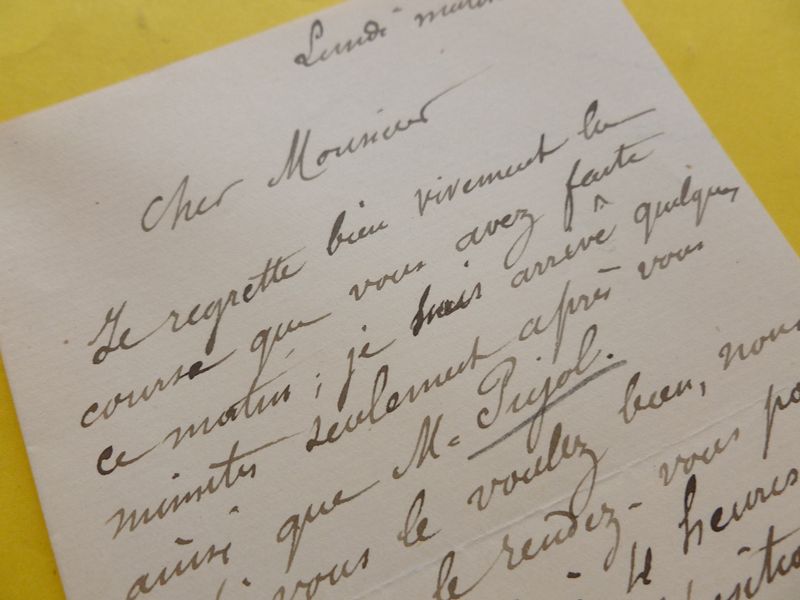 Lundi matin
Cher Monsieur
Je regrette bien vivement la
course que vous avez faite
ce matin ; je suis arrivé quelques
minutes seulement après vous
ainsi que Mr Pujol.
vous le voulez bien, nous
le rendez-vous
4 heures